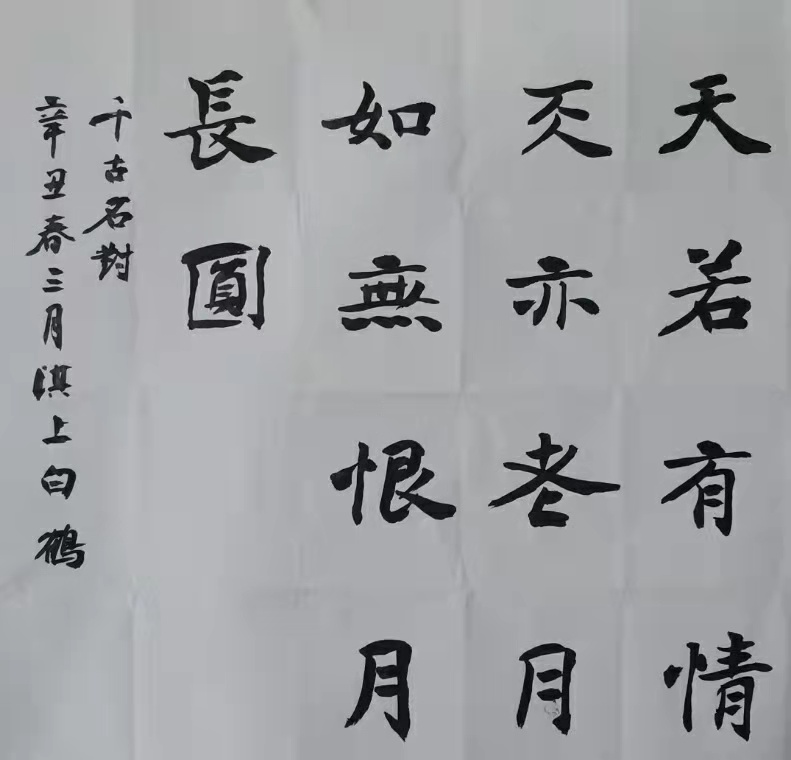 天若有情
天亦老月
如無恨月
長圓
千古名對
辛丑春三月淇上白鶴